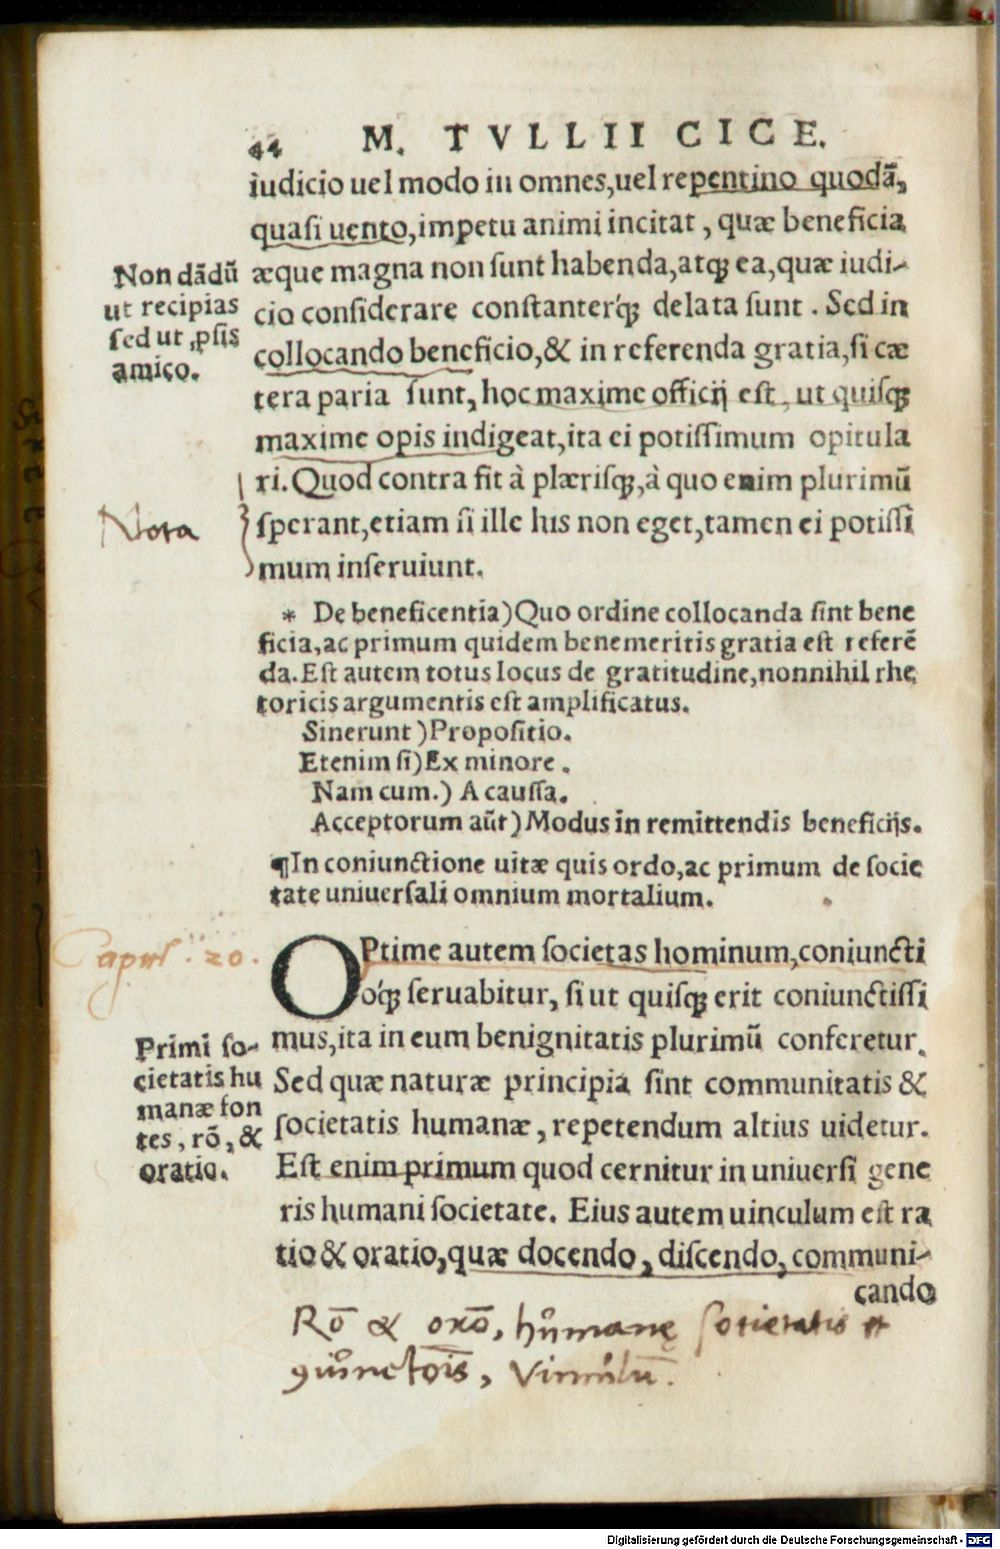 44 M. TVLLII CICE.
iudicio uel modo in omnes,uel repentino quodã,
quasi uento,impetu animi incitat, quæ beneficia
æque magna non sunt habenda,atq́; ea,quæ iudi-
cio considerare constanterq́; delata sunt. Sed in
collocando beneficio,& in referenda gratia,si cæ
tera paria sunt, hoc maxime officij est, ut quisq;
maxime opis indigeat,ita ei potissimum opitula
ri. Quod contra fit à plærisq;,à quo enim plurimũ
sperant,etiam si ille his non eget,tamen ei potissi
mum inseruiunt.
Non dãdũ
ut recipias
sed ut ꝓsis
amico.
Nota
* De beneficentia) Quo ordine collocanda sint bene
ficia,ac primum quidem benemeritis gratia est referẽ
da. Est autem totus locus de gratitudine,nonnihil rhe
toricis argumentis est amplificatus.
Sinerunt) Propositio.
Etenim si) Ex minore.
Nam cum.) A caussa.
Acceptorum aũt) Modus in remittendis beneficijs.
¶In coniunctione uitæ quis ordo,ac primum de socie
tate uniuersali omnium mortalium.
Caput. 20.
OPtime autem societas hominum,coniuncti
oq́; seruabitur, si ut quisq; erit coniunctissi
mus,ita in eum benignitatis plurimũ conferetur.
Sed quæ naturæ principia sint communitatis &
societatis humanæ, repetendum altius uidetur.
Est enim primum quod cernitur in uniuersi gene
ris humani societate. Eius autem uinculum est ra
tio & oratio,quæ docendo, discendo, communi-
cando
Primi so-
cietatis hu
manæ fon
tes, rõ, &
oratio.
Rõ & orõ, humanę societatis et
ꝯiũnctõis, Vinculũ.